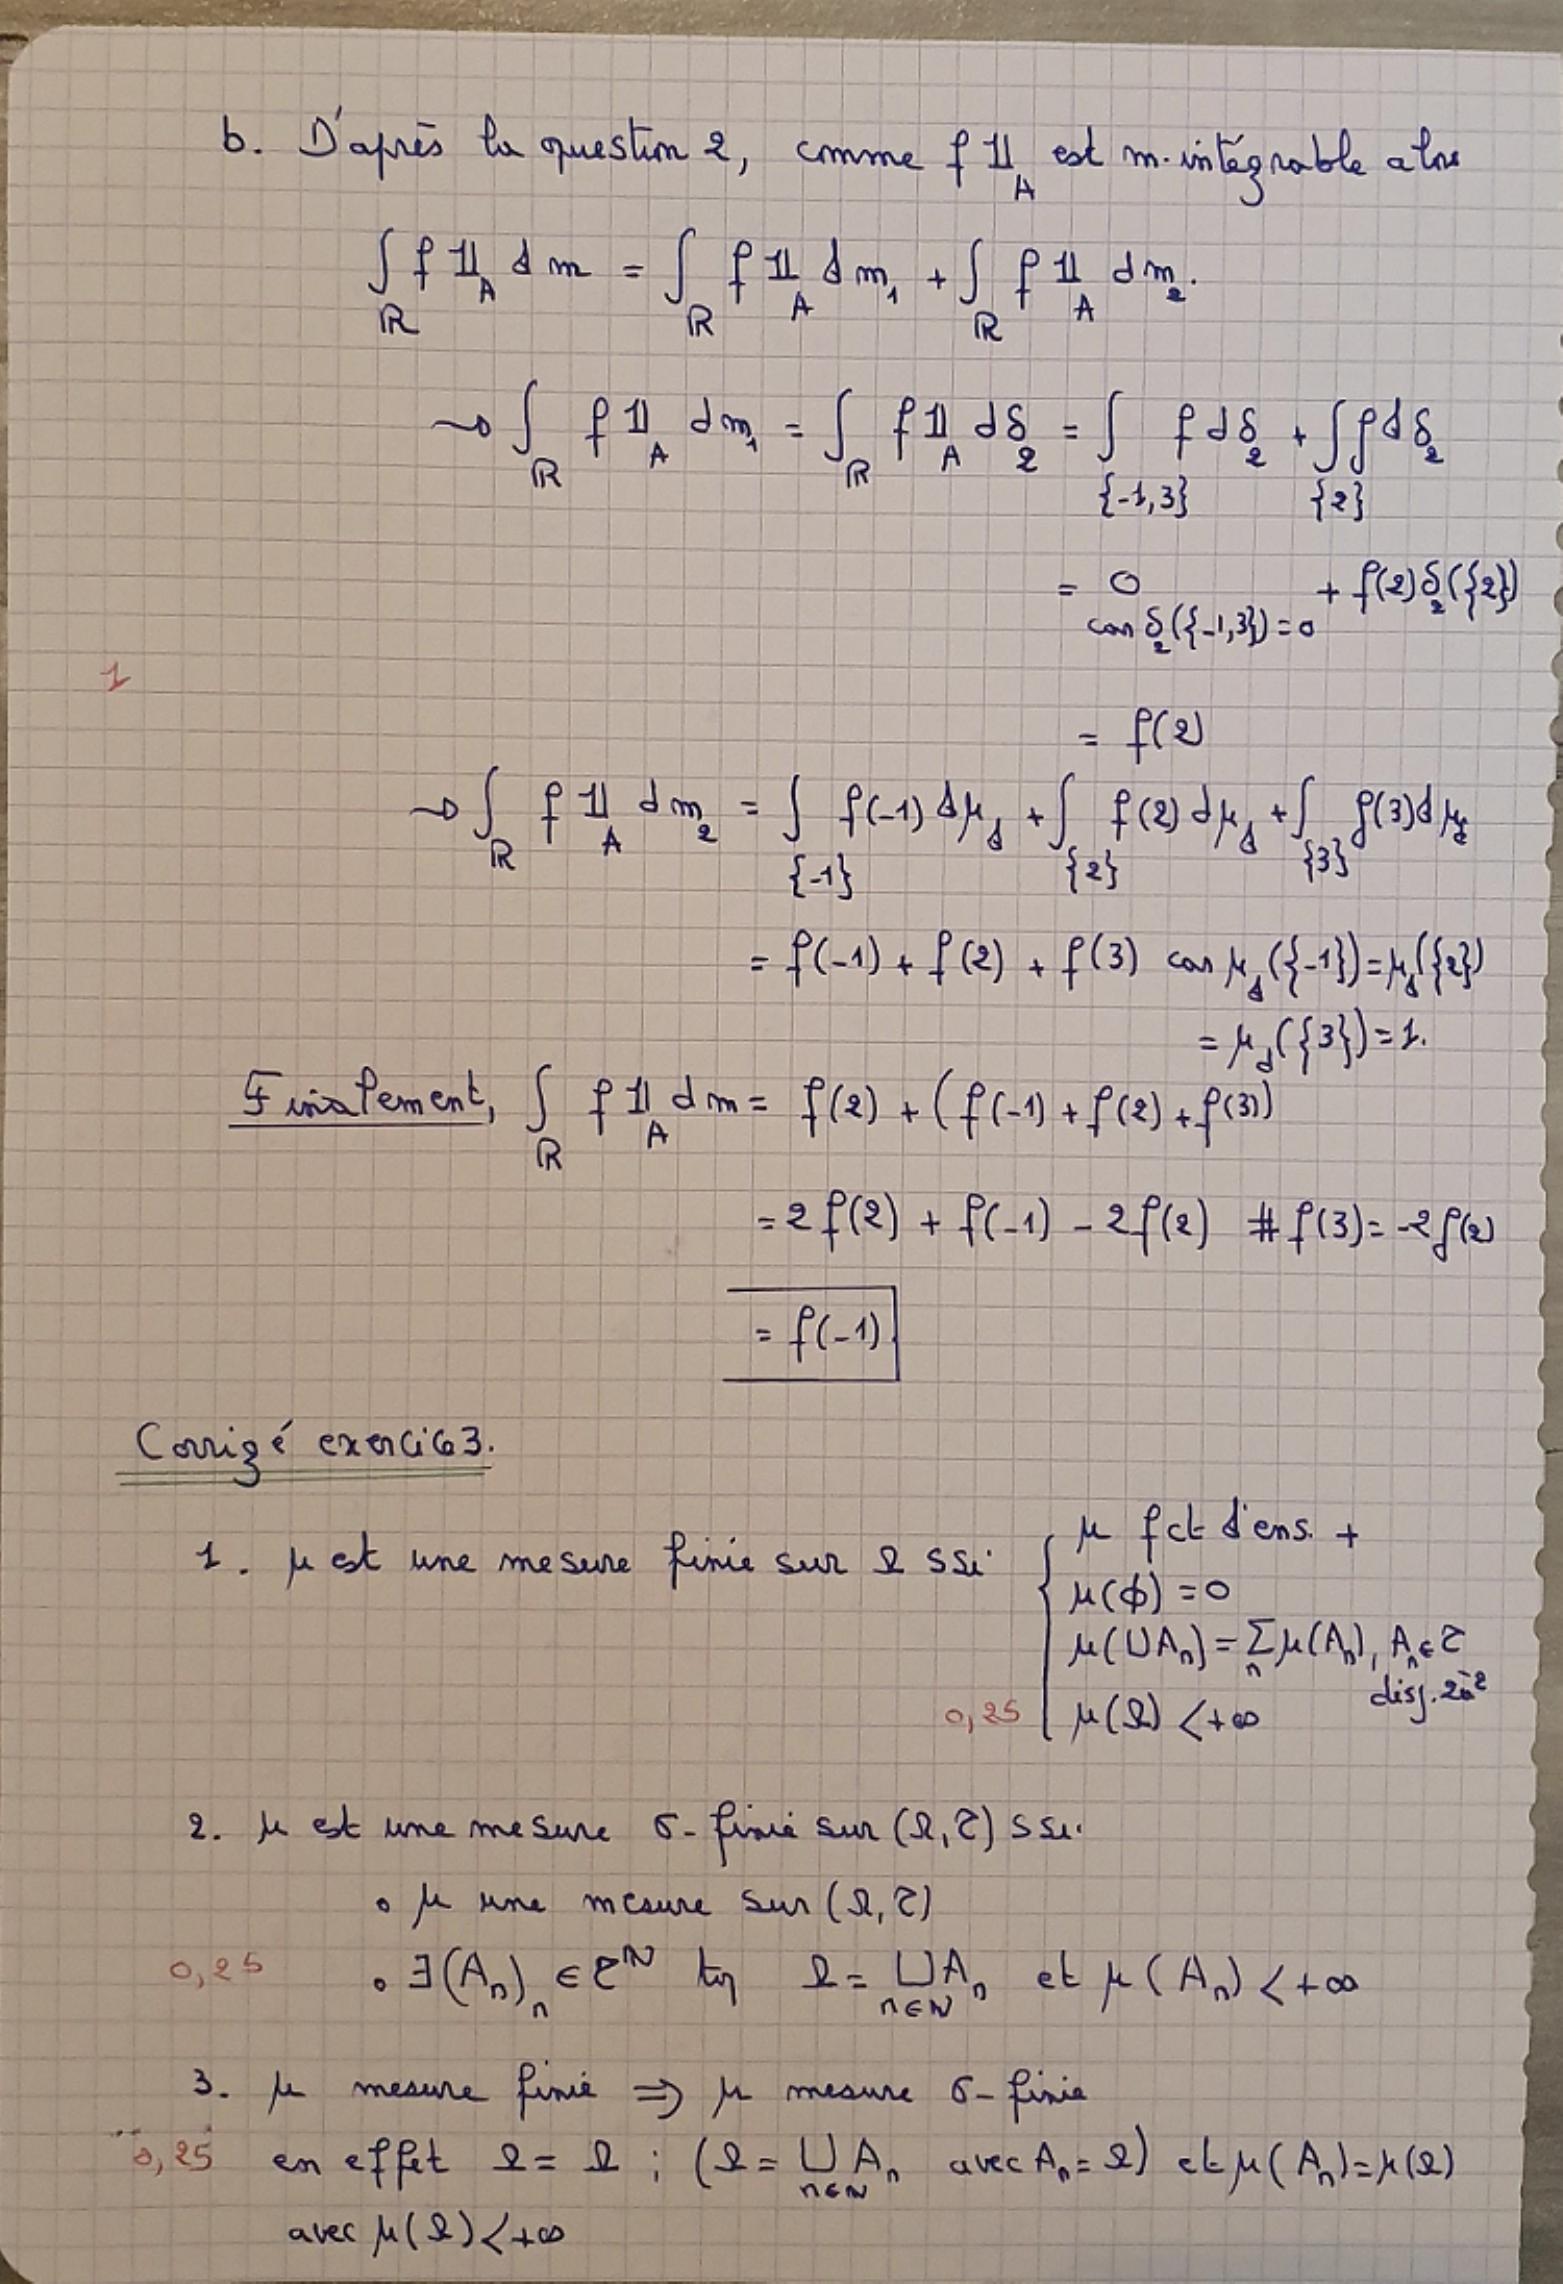 b. D'après la question 2, comme f 𝟙_A est m-intégrable alors
∫_ℝ f 𝟙_A d m = ∫_ℝ f 𝟙_A d m_1 + ∫_ℝ f 𝟙_A d m_2.
⇝ ∫_ℝ f 𝟙_A d m_1 = ∫_ℝ f 𝟙_A d δ_2 = ∫_{-1,3} f d δ_2 + ∫_{2} f d δ_2
= 0 + f(2) δ_2({2})
car δ_2({-1,3}) = 0
1
= f(2)
⇝ ∫_ℝ f 𝟙_A d m_2 = ∫_{-1} f(-1) d μ_d + ∫_{2} f(2) d μ_d + ∫_{3} f(3) d μ_d
= f(-1) + f(2) + f(3) car μ_d({-1}) = μ_d({2})
= μ_d({3}) = 1.
Finalement, ∫_ℝ f 𝟙_A d m = f(2) + (f(-1) + f(2) + f(3))
= 2 f(2) + f(-1) - 2 f(2) # f(3) = -2 f(2)
= f(-1)
Corrigé exercice 3.
1. μ est une mesure finie sur Ω ssi { μ fct d'ens. +
μ(ϕ) = 0
μ(∪A_n) = Σ_n μ(A_n), A_n ∈ τ
disj. 2à2
0,25 μ(Ω) < +∞
2. μ est une mesure σ-finie sur (Ω, τ) ssi
• μ une mesure sur (Ω, τ)
0,25 • ∃(A_n)_n ∈ τ^ℕ tq Ω = ∪_{n∈ℕ} A_n et μ(A_n) < +∞
3. μ mesure finie ⇒ μ mesure σ-finie
0,25 en effet Ω = Ω ; (Ω = ∪_{n∈ℕ} A_n avec A_n = Ω) et μ(A_n) = μ(Ω)
avec μ(Ω) < +∞